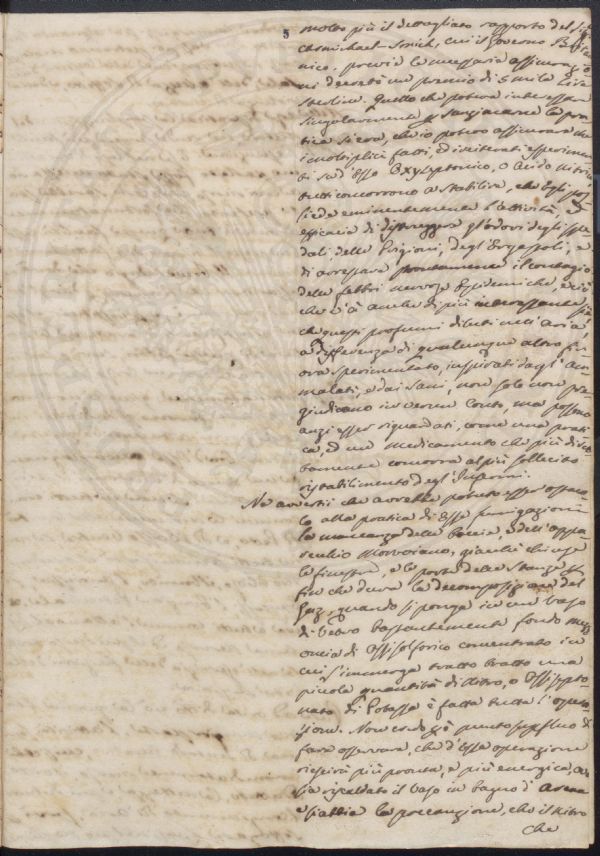 5
molto più il dettagliato rapporto del
Carmichael-Smich, cui il Governo
nico, previe le necessarie assicurazio
ni decretò un premio di 5 mila Lire
sterline. Quello che poteva interessare
singolarmente
tica si era, che io potevo assicurare che
i moltiplici fatti, ed i reiterati esperimen
ti su d'esso Oxyseptonico, o Acido nitrico
tutti concorrono a stabilire, che egli pos-
siede eminentemente l'attività, ed
efficacia di distruggere gl'odori degli Spe
dali, delle Prigioni, degl'Ergastoli, e
di arrestare prontamente il contagio
delle febbri nervose Epidemiche, e ciò
che v'à anche di più interessante, si è
che questi profumi diluti nell'aria
a differenza di qualunque altro fi
ora sperimentato, inspirati dagl'am
malati, e dai sani, non solo non pre
giudicano in verun conto, ma possono
anzi esser riguardati, come una prati
ca, ed un medicamento che più diret
tamente concorra al più sollecito
ristabilimento degl'Infermi.
Ne avvertii che avrebbe potuto esser ostaco
lo alla pratica di esse fumigazioni
la mancanza delle boccie, e dell'appa
recchio Morvoiano, giacchè chiuse
le finestre, e le porte delle Stanze
fin che dura la decomposizione del
Gaz, quando si ponga in un vaso
di Vetro bastantemente fondo mezz
oncia di Ossisolforico concentrato in
cui s'immerga tratto tratto una
piccola quantità di Nitro, o Ossisepto
nato di Potassa è fatta tutta l'opera
zione. Non credo già punto superfluo di
fare osservare, che d'essa operazione
riescirà più pronta, e più energica, ove
sia riscaldato il vaso in bagno d'arena
e s'abbia la precauzione, che il Nitro
che